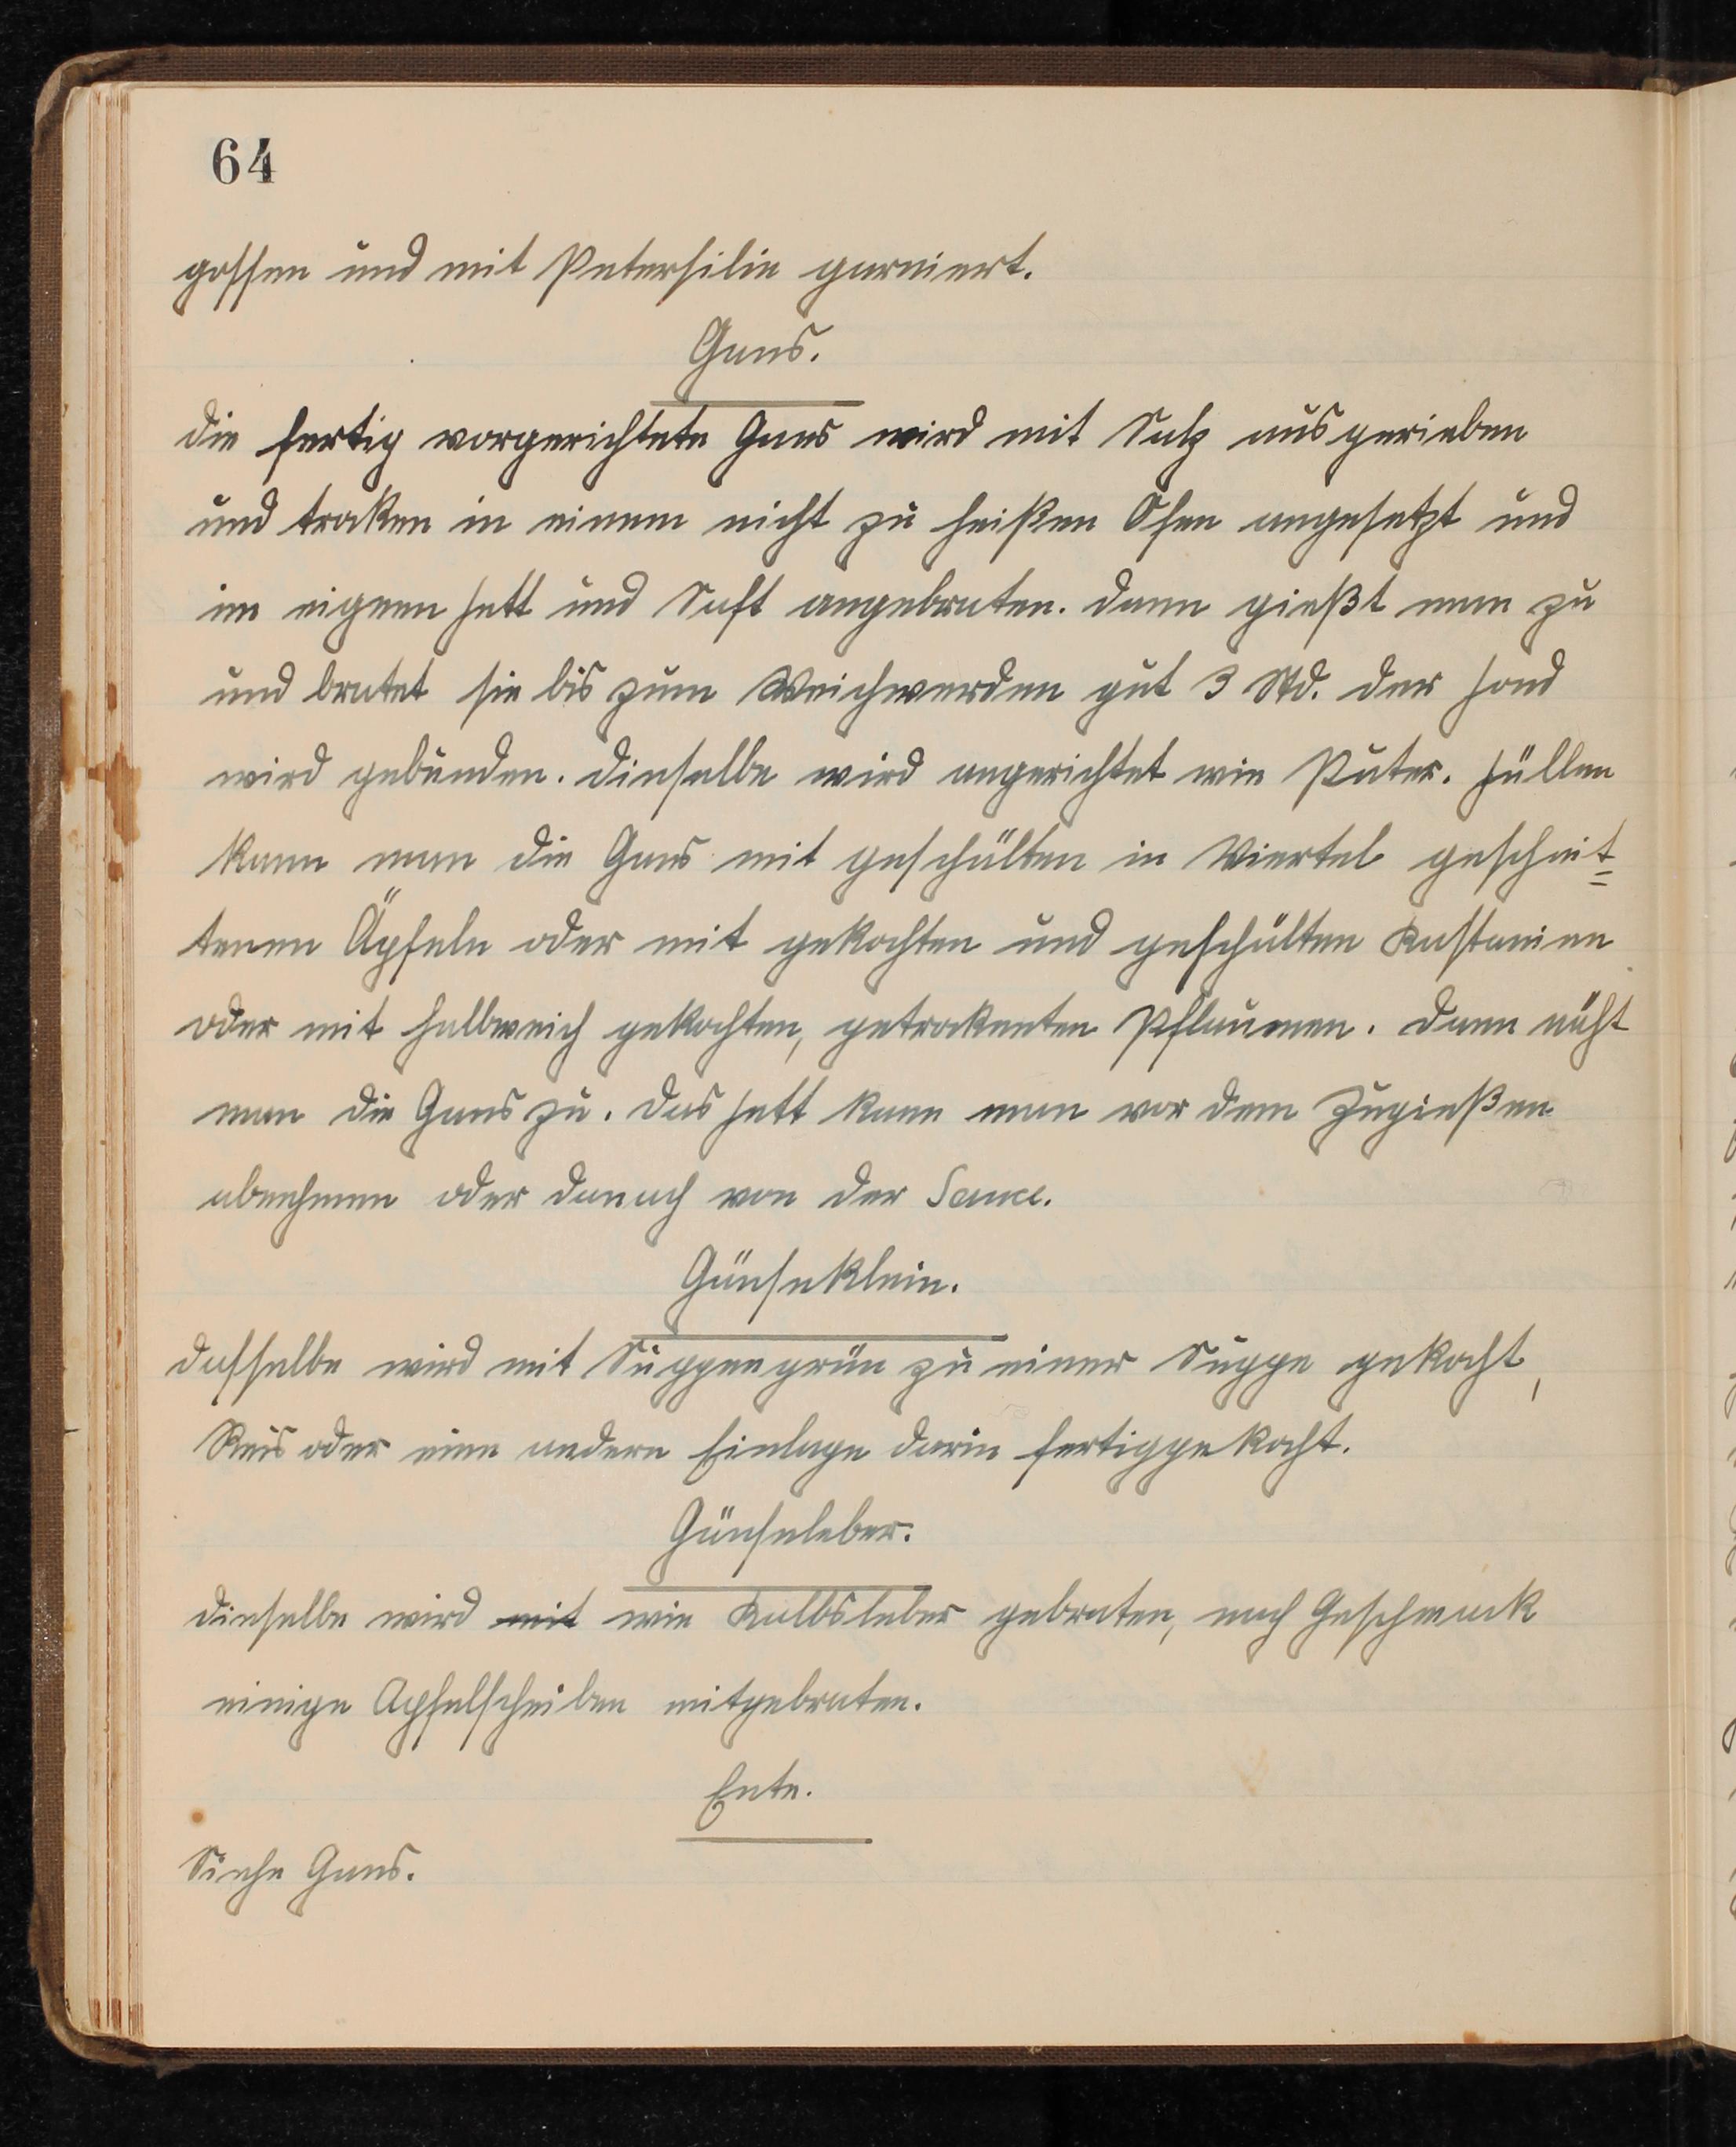 64
gossen und mit Petersilie garniert.
Gans.
Die fertig vorgerichtete Gans wird mit Salz ausgerieben
und trocken in einem nicht zu heißen Ofen angesetzt und
im eignen Fett und Saft angebraten. Dann gießt man zu
und bratet sie bis zum Weichwerden gut 3 Std. Der Fond
wird gebunden. Dieselbe wird angerichtet wie Puter. Füllen
kann man die Gans mit geschälten in Viertel geschnit=
tenen Äpfeln oder mit gekochten und geschälten Kastanien
oder mit halbweich gekochten, getrockenten Pflaumen. Dann näht
man die Gans zu. Das Fett kann man vor dem Zugießen
abnehmen oder danach von der Sauce.
Gänseklein.
Dasselbe wird mit Suppengrün zu einer Suppe gekocht,
Reis oder eine andere Einlage darin fertiggekocht.
Gänseleber.
Dieselbe wird mit wie Kalbsleber gebraten, nach Geschmack
einige Apfelscheiben mitgebraten.
Ente.
Siehe Gans.